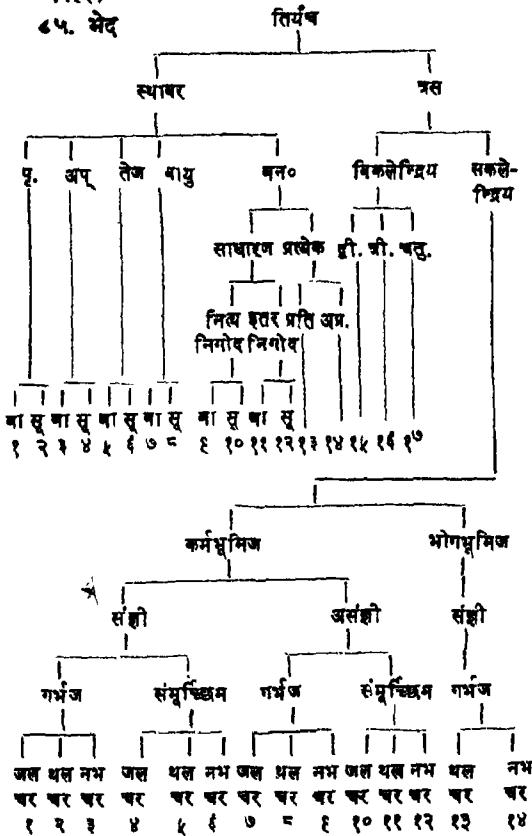 ८५. भेद
तिर्यंच
स्थावर त्रस
पृ. अप् तेज वायु वन० विकलेन्द्रिय सकले-
न्द्रिय
साधारण प्रत्येक द्वी. त्री. चतु.
नित्य इतर प्रति अप्र.
निगोद निगोद
बा सू बा सू बा सू बा सू बा सू बा सू
१ २ ३ ४ ५ ६ ७ ८ ९ १० ११ १२ १३ १४ १५ १६ १७
कर्मभूमिज भोगभूमिज
संज्ञी असंज्ञी संज्ञी
गर्भज संमूर्च्छिम गर्भज संमूर्च्छिम गर्भज
जल थल नभ जल थल नभ जल थल नभ जल थल नभ थल नभ
चर चर चर चर चर चर चर चर चर चर चर चर चर चर
१ २ ३ ४ ५ ६ ७ ८ ९ १० ११ १२ १३ १४